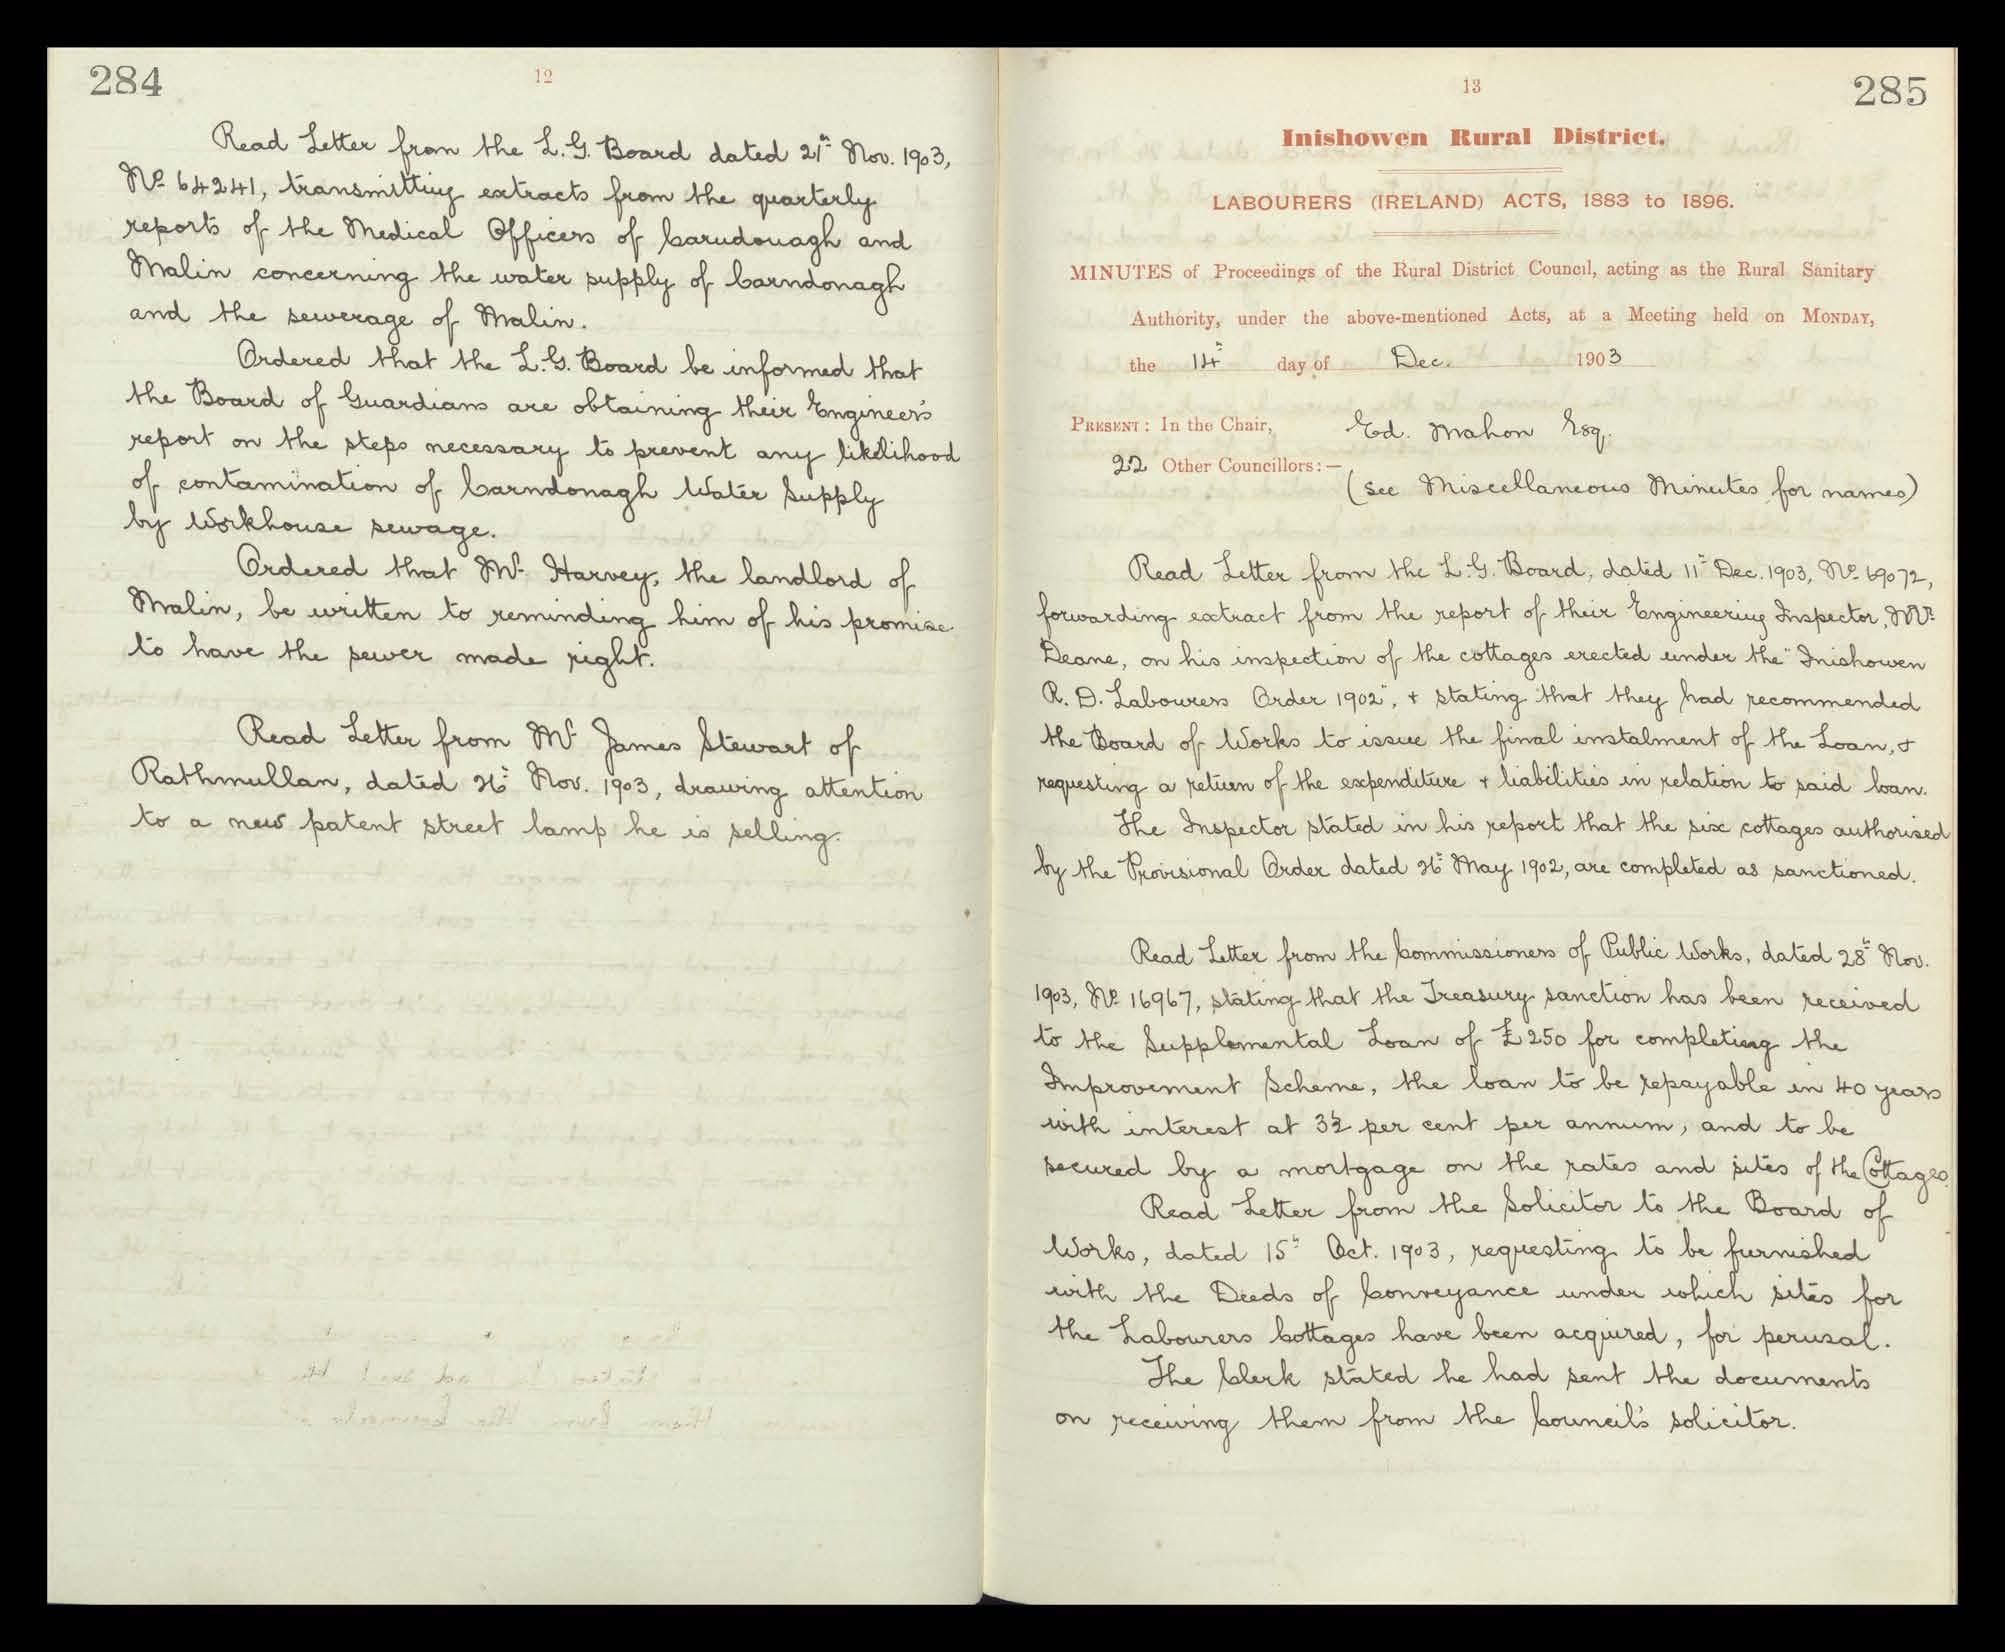 284
12
Read Letter from the L.G. Board dated 21st Nov. 1903,
No 64241, transmitting extracts from the quarterly
reports of the Medical Officers of Carndonagh and
Malin concerning the water supply of Carndonagh
and the sewerage of Malin.
Ordered that the L.G. Board be informed that
the Board of Guardians are obtaining their Engineer's
report on the steps necessary to prevent any likelihood
of contamination of Carndonagh Water Supply
by Workhouse sewage.
Ordered that Mr Harvey, the landlord of
Malin, be written to reminding him of his promise
to have the sewer made right.
Read Letter from Mr James Stewart of
Rathmullan, dated 26th Nov. 1903, drawing attention
to a new patent street lamp he is selling.
13
285
Inishowen Rural District.
LABOURERS (IRELAND) ACTS, 1883 to 1896.
MINUTES of Proceedings of the Rural District Council, acting as the Rural Sanitary
Authority, under the above-mentioned Acts, at a Meeting held on MONDAY,
the 14th day of Dec. 1903
PRESENT: In the Chair, Ed. Mahon Esq.
22 Other Councillors:—
(see Miscellaneous Minutes for names)
Read Letter from the L.G. Board, dated 11th Dec. 1903, No 69072,
forwarding extract from the report of their Engineering Inspector, Mr
Deane, on his inspection of the cottages erected under the "Inishowen
R.D. Labourers Order 1902", + stating that they had recommended
the Board of Works to issue the final instalment of the Loan, +
requesting a return of the expenditure + liabilities in relation to said loan.
The Inspector stated in his report that the six cottages authorised
by the Provisional Order dated 26th May 1902, are completed as sanctioned.
Read Letter from the Commissioners of Public Works, dated 28th Nov.
1903, No 16967, stating that the Treasury sanction has been received
to the Supplemental Loan of £250 for completing the
Improvement Scheme, the loan to be repayable in 40 years
with interest at 3½ per cent per annum, and to be
secured by a mortgage on the rates and sites of the Cottages.
Read Letter from the Solicitor to the Board of
Works, dated 15th Oct. 1903, requesting to be furnished
with the Deeds of Conveyance under which sites for
the Labourers Cottages have been acquired, for perusal.
The Clerk stated he had sent the documents
on receiving them from the Council's solicitor.